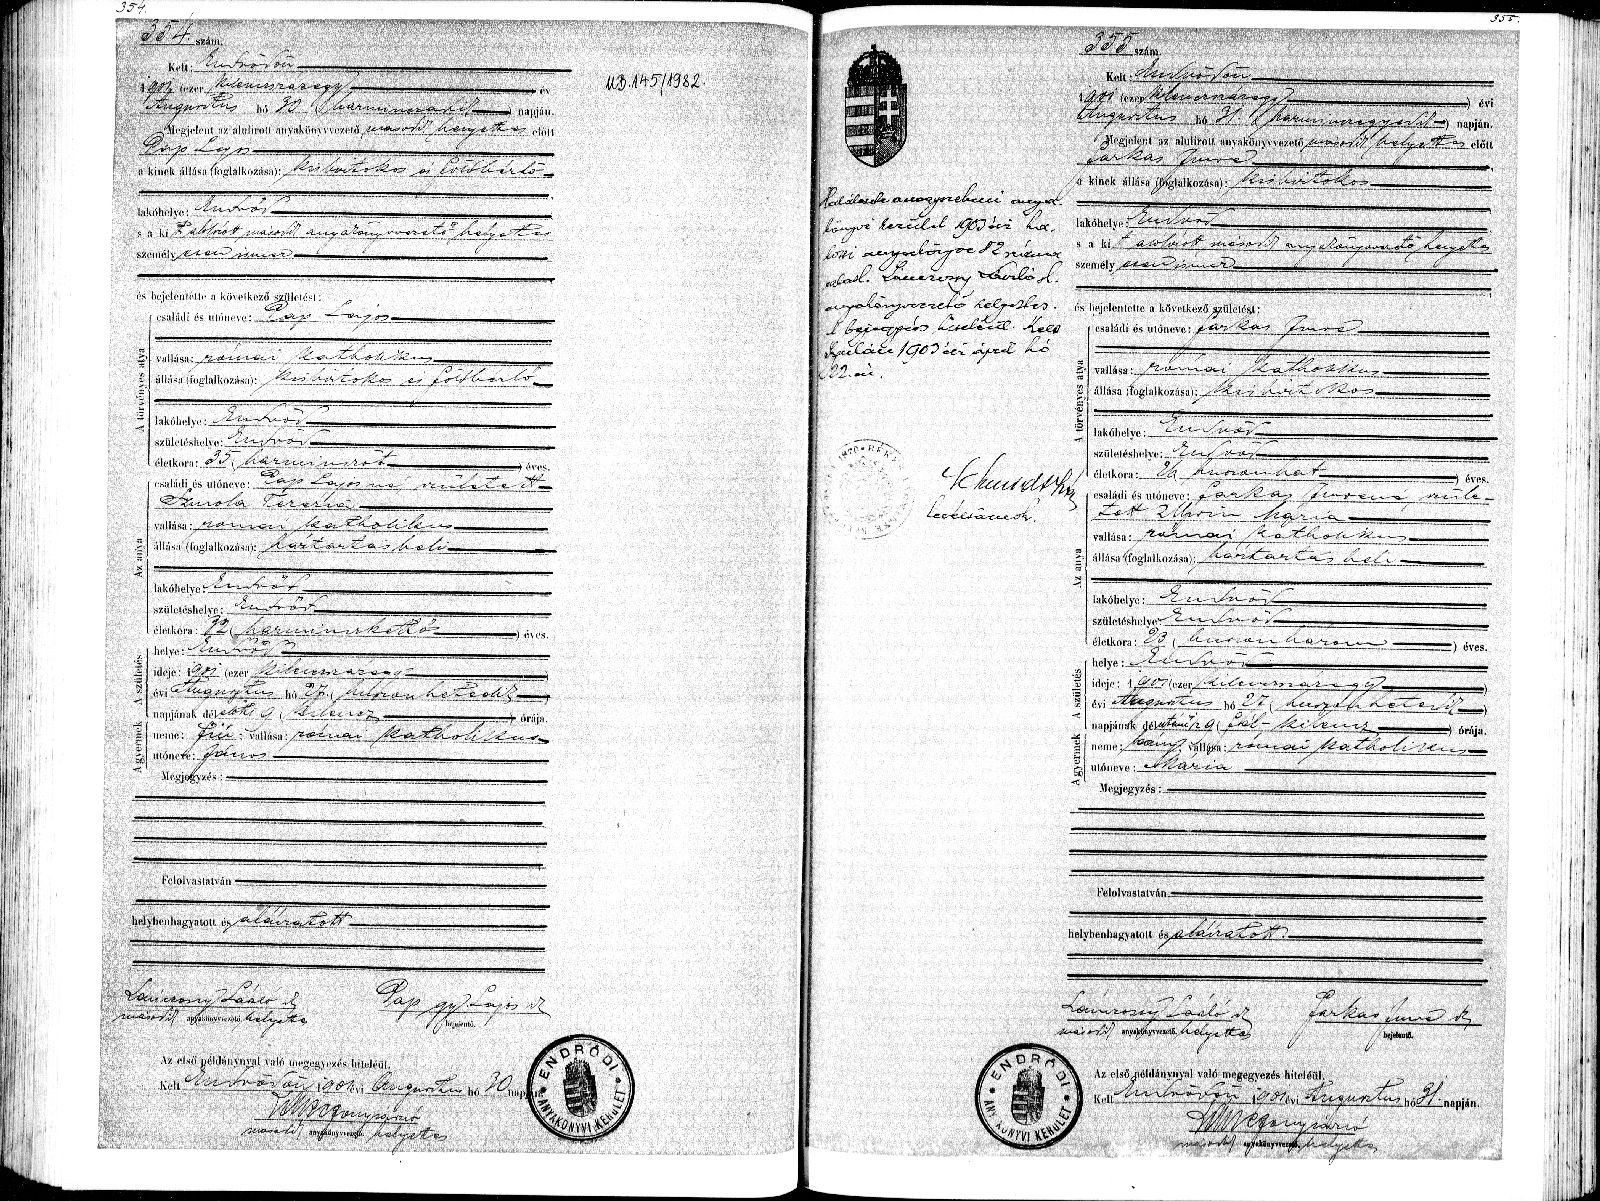 354.
354 szám.
Kelt: Endrődön
1901 (ezer kilenczszázegy) év
Augusztus hó 30 (harminczadik) napján.
Megjelent az alulirott anyakönyvvezető másodi helyettes előtt
Pap Lajos
a kinek állása (foglalkozása): kisbirtokos és földbérlő
lakóhelye: Endrőd
s a kit alulirott másodi anyakönyvvezető helyettes
személyesen ismer
és bejelentette a következő születést:
A törvényes atya
családi és utóneve: Pap Lajos
vallása: római katholikus
állása (foglalkozása): kisbirtokos és földbérlő
lakóhelye: Endrőd
születéshelye: Endrőd
életkora: 35 (harminczöt) éves.
Az anya
családi és utóneve: Pap Lajosné, született
Szmola Terézia
vallása: római katholikus
állása (foglalkozása): háztartásbeli
lakóhelye: Endrőd
születéshelye: Endrőd
életkora: 32 (harminczkettő) éves.
A születés
helye: Endrőd
ideje: 1901 (ezer kilenczszázegy
évi Augusztus hó 27 (huszonhetedik)
napjának délelőtti 9 (kilencz) órája.
A gyermek
neme: fiú; vallása: római katholikus
utóneve: János
Megjegyzés:
Felolvastatván
helybenhagyatott és aláiratott
Pap gy Lajos sk
másodi anyakönyvvezető. helyettes
bejelentő.
Az első példánynyal való megegyezés hiteléül.
Kelt Endrődön 1901 évi Augusztus hó 30 napján
másodi anyakönyvvezető. helyettes
ENDRŐDI
ANYAKÖNYVI KERÜLET
MD.145/1982.
355.
355 szám
Kelt: Endrődön
1901 (ezer kilenczszázegy) évi
Augusztus hó 31 (harminczegyedik) napján.
Megjelent az alulirott anyakönyvvezető másodi helyettes előtt
Farkas Imre
a kinek állása (foglalkozása): kisbirtokos
lakóhelye: Endrőd
s a kit alulirott másodi anyakönyvvezető helyettes
személyesen ismer
és bejelentette a következő születést:
A törvényes atya
családi és utóneve: Farkas Imre
vallása: római katholikus
állása (foglalkozása): kisbirtokos
lakóhelye: Endrőd
születéshelye: Endrőd
életkora: 26 (huszonhat) éves.
Az anya
családi és utóneve: Farkas Imréné, szüle-
tett Mária
vallása: római katholikus
állása (foglalkozása): háztartásbeli
lakóhelye: Endrőd
születéshelye: Endrőd
életkora: 23 (huszonhárom) éves.
A születés
helye: Endrőd
ideje: 1901 (ezer kilenczszázegy)
évi Augusztus hó 27 (huszonhetedik)
napjának délutáni ½ 9 (fél kilencz) órája.
A gyermek
neme: leány; vallása: római katholikus
utóneve: Mária
Megjegyzés:
Felolvastatván
helybenhagyatott és aláiratott.
Farkas Imre sk
másodi anyakönyvvezető. helyettes
bejelentő.
Az első példánynyal való megegyezés hiteléül.
Kelt Endrődön 1901 évi Augusztus hó 31 napján.
másodi anyakönyvvezető. helyettes
ENDRŐDI
ANYAKÖNYVI KERÜLET
1903 évi ha-
82 szám
anyakönyvvezető helyettes.
1903 évi április hó
22.én.